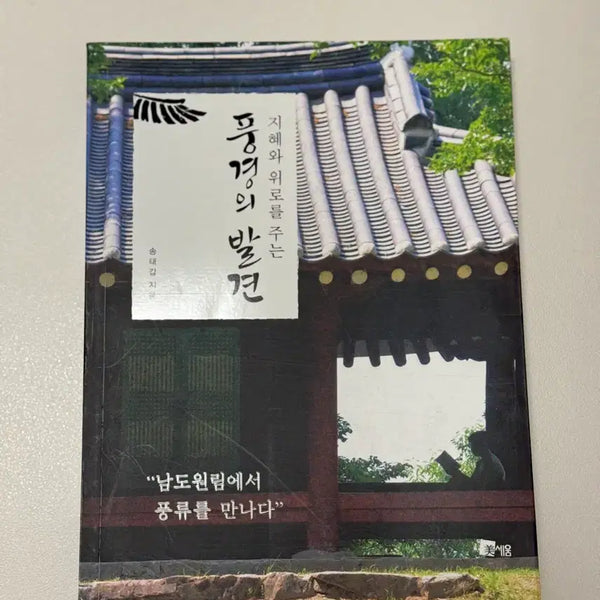 지혜와 위로를 주는
풍경의 발견
송태갑 지음
"남도원림에서
풍류를 만나다"
세움